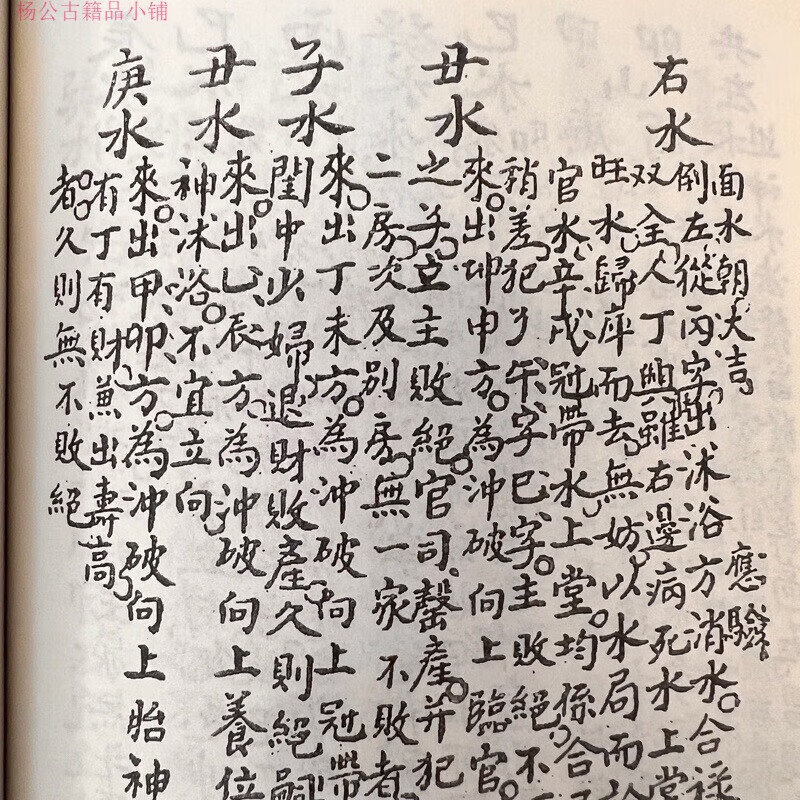 杨公古籍品小铺
右水
面水朝大吉
倒左從丙字出沐浴方消水合祿
應驗
双全人丁興雖右邊病死水上堂
旺水歸庫而去無妨以水局而
官水辛戌冠帶水上堂均係合
稍差犯了午字巳字主敗絕不
丑水
來出坤申方為沖破向上臨官
之子立主敗絕官司罄產并犯
二房次及別房無一家不敗者
子水
來出丁未方為沖破向上冠帶
閨中少婦退財敗產久則絕嗣
丑水
來出乙辰方為沖破向上養位
神沐浴不宜立向
庚水
來出甲卯方為沖破向上胎神
有丁有財兼出壽高
者久則無不敗絕